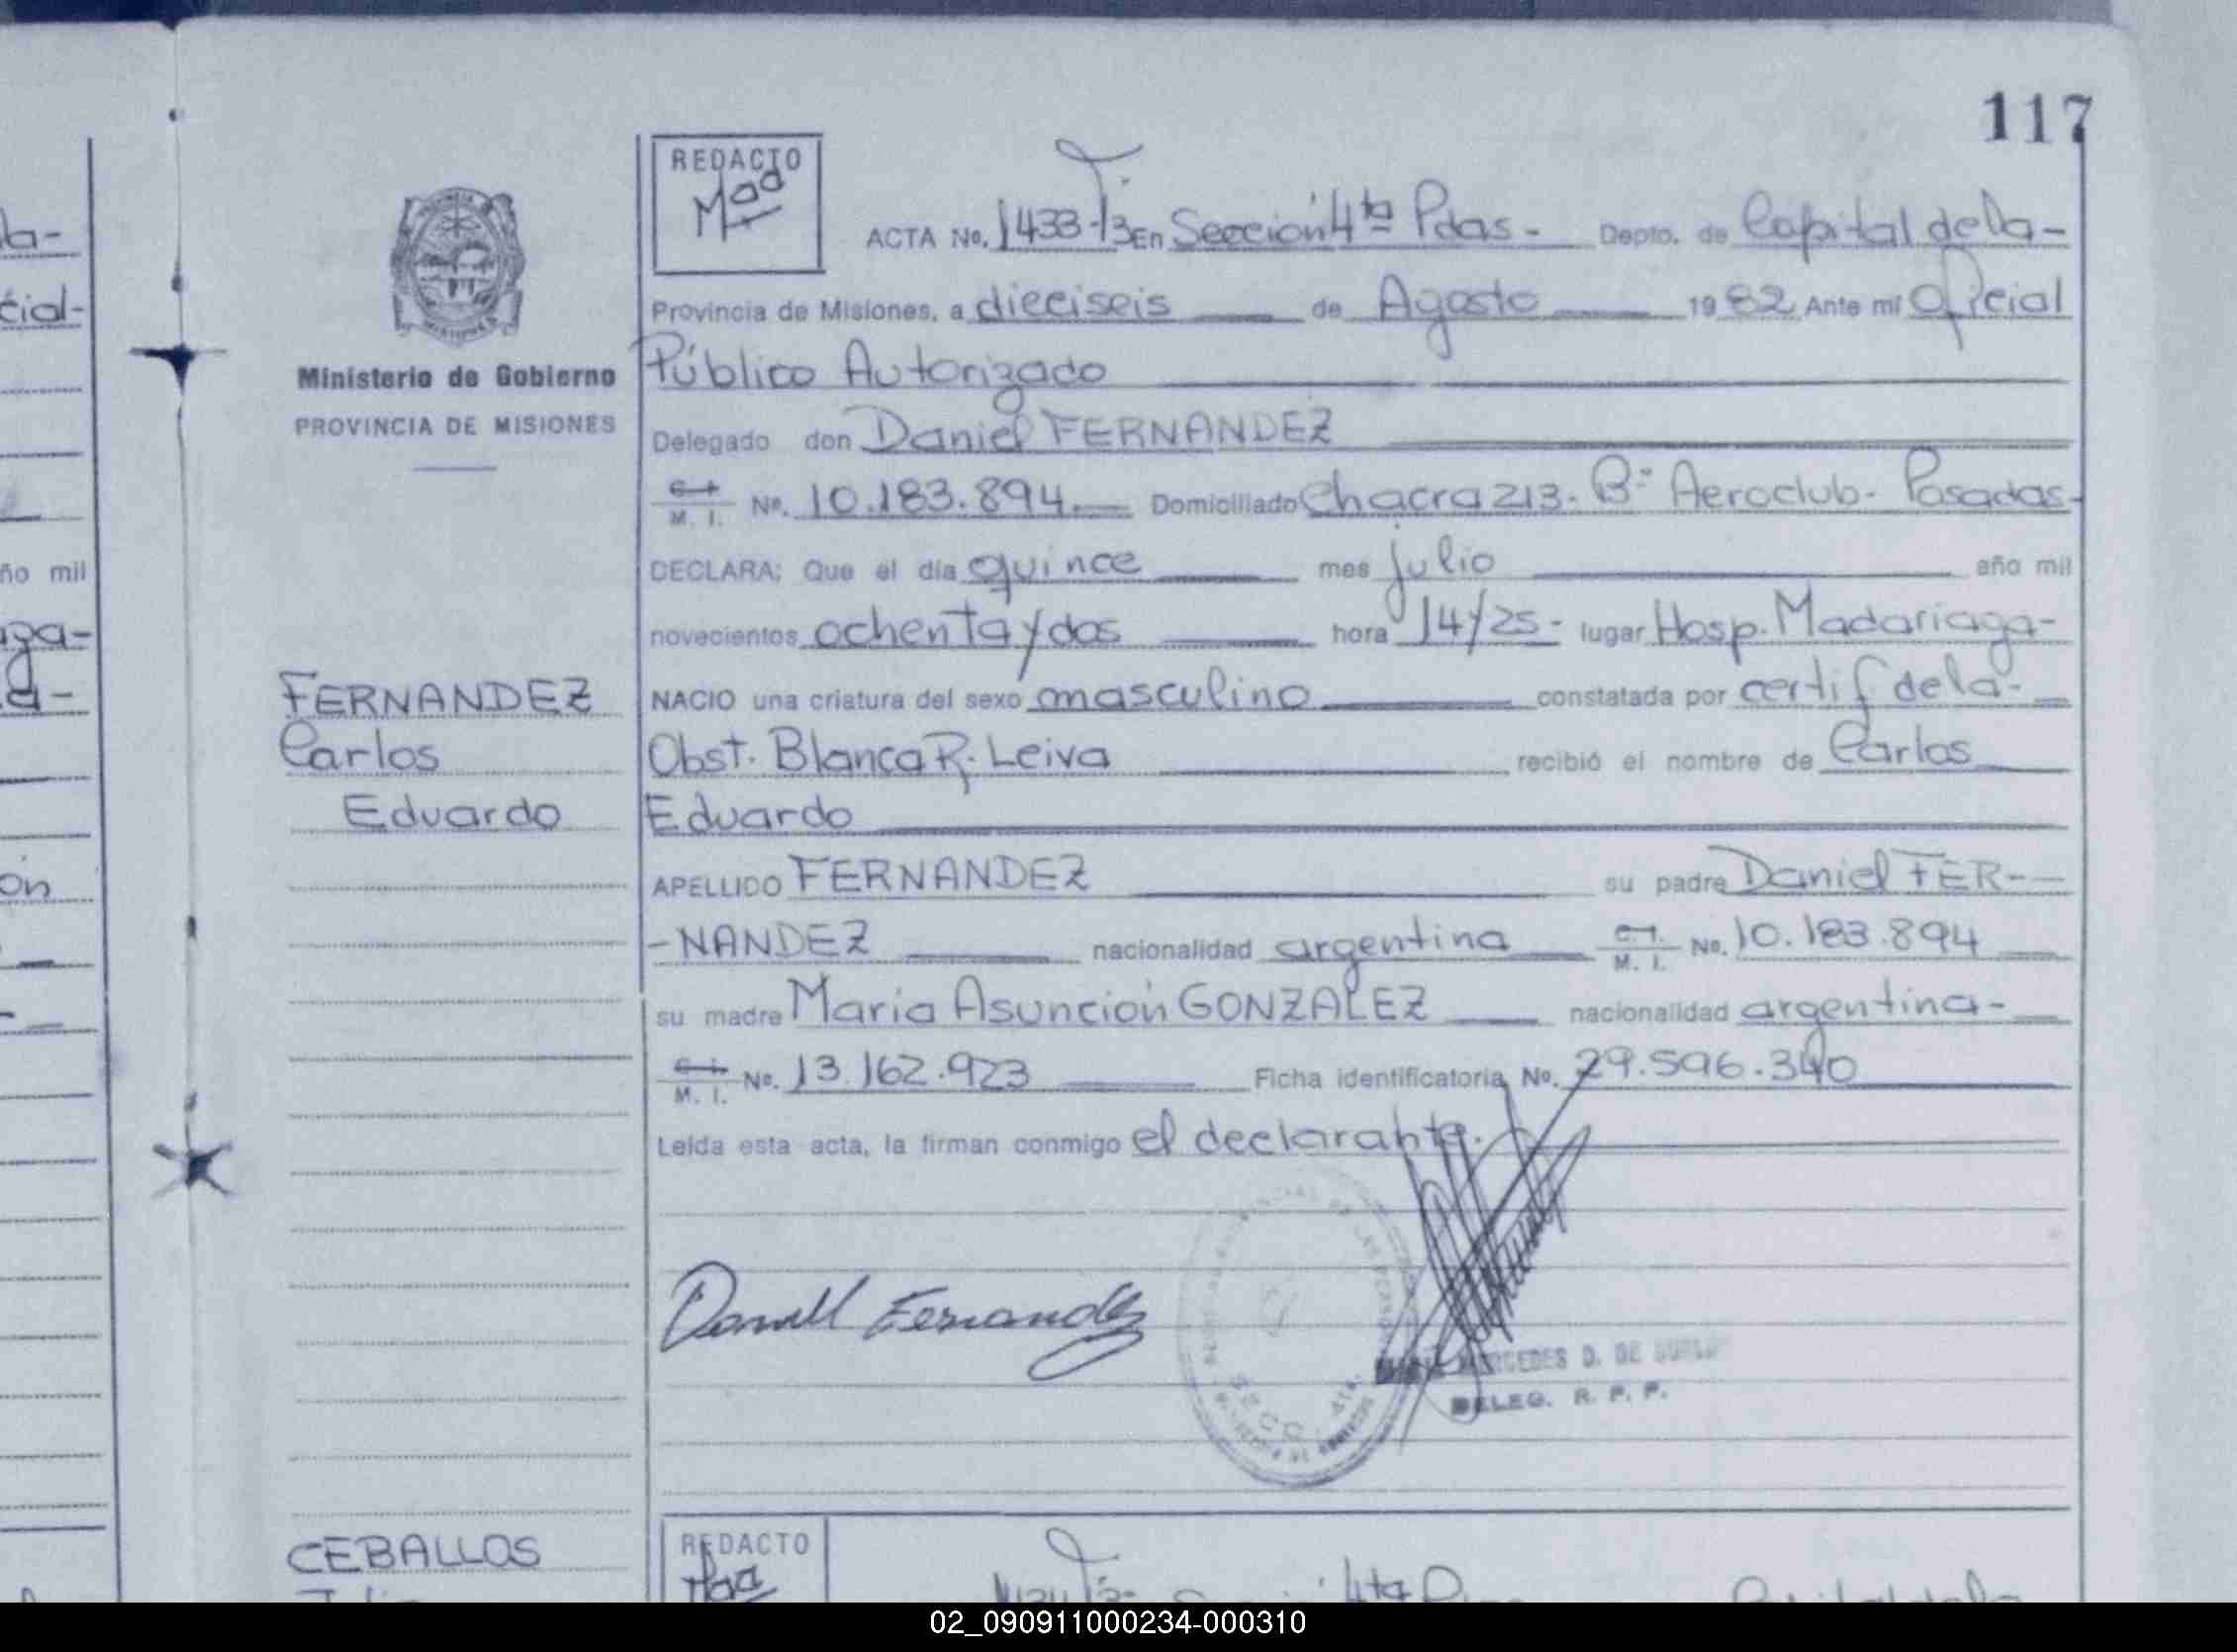 117
REDACTO
ACTA No. 1433-T3 En Sección 4ta Pdas.- Depto. de Capital de la-
Provincia de Misiones, a dieciseis de Agosto 1982 Ante mí Oficial
Ministerio de Gobierno
PROVINCIA DE MISIONES
Público Autorizado
Delegado don Daniel FERNANDEZ
C.I. M. I. No. 10.183.894.- Domiciliado Chacra 213.- Bº Aeroclub.- Posadas-
DECLARA: Que el día quince mes julio año mil
novecientos ochenta y dos hora 14/25- lugar Hosp. Madariaga-
FERNANDEZ
Carlos
Eduardo
NACIO una criatura del sexo masculino constatada por certif de la-
Obst. Blanca R. Leiva recibió el nombre de Carlos
Eduardo
APELLIDO FERNANDEZ su padre Daniel FER-
-NANDEZ nacionalidad argentina C.I. M. I. No. 10.183.894
su madre María Asunción GONZALEZ nacionalidad argentina-
C.I. M. I. No. 13.162.923 Ficha identificatoria No. 29.596.340
Leída esta acta, la firman conmigo el declarante.
Daniel Fernandez
MERCEDES D. DE
DELEG. R. P. P.
CEBALLOS
REDACTO
la-
cial-
ño mil
02_090911000234-000310